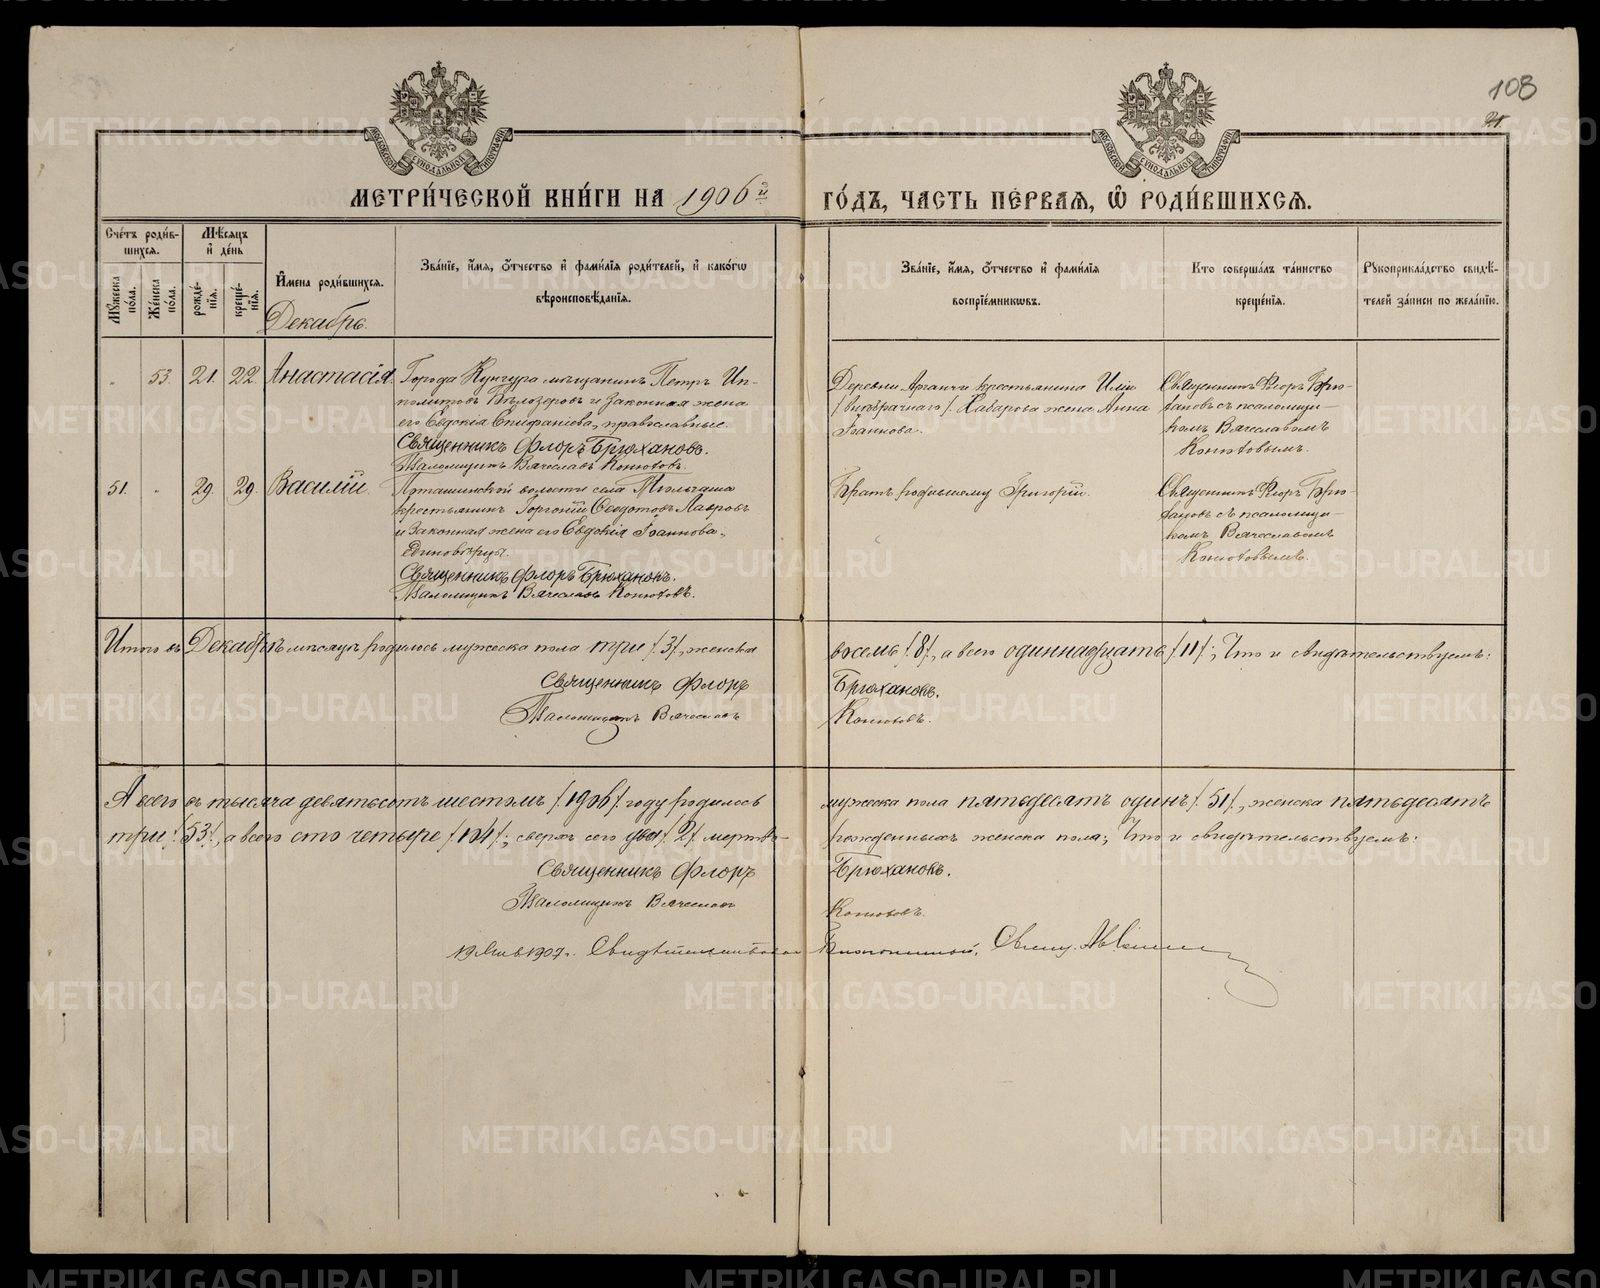 108
21
МОСКОВСКОЙ СѴНОДАЛЬНОЙ ТИПОГРАФІИ
МОСКОВСКОЙ СѴНОДАЛЬНОЙ ТИПОГРАФІИ
МЕТРИ́ЧЕСКОЙ КНИ́ГИ НА 1906й ГО́ДЪ, ЧАСТЬ ПЕ́РВАЯ, Ѡ РОДИ́ВШИХСЯ.
Сче́тъ роди́в-
шихся.
Мѣ́сяцъ
и де́нь
Мꙋ́жеска по́ла.
Же́нска по́ла.
рожде́-
нїя.
креще́-
нїя.
И́мена роди́вшихся.
Декабрь.
Зва́нїе, и́мя, ѻ́тчество и фами́лїя роди́телей, и како́гѡ
вѣроисповѣ́данїя.
Зва́нїе, и́мя, ѻ́тчество и фами́лїя
воспрїе́мникѡвъ.
Кто соверша́лъ та́инство
креще́нїя.
Рꙋкоприкла́дство свидѣ́-
телей за́писи по жела́нїю.
" 53. 21. 22. Анастасія.
Города Кунгура мѣщанинъ Петръ Ип-
политовъ Бѣлозеровъ и законная жена
его Евдокія Епифаніева, православные.
Священникъ Флоръ Брюхановъ.
Псаломщикъ Вячеславъ Конюховъ.
Деревни Арганчи крестьянина Иліи
/внѣбрачнаго/ Хабарова жена Анна
Іоаннова.
Священникъ Флоръ Брю-
хановъ съ псаломщи-
комъ Вячеславомъ
Конюховымъ.
51. " 29. 29. Василій.
Поташинской волости села
крестьянинъ Горгоній Ѳеодотовъ Лавровъ
и законная жена его Евдокія Іоаннова,
Единовѣрцы.
Священникъ Флоръ Брюхановъ.
Псаломщикъ Вячеславъ Конюховъ.
Братъ родившему Григорій.
Священникъ Флоръ Брю-
хановъ съ псаломщи-
комъ Вячеславомъ
Конюховымъ.
Итого въ Декабрѣ мѣсяцѣ родилось мужеска пола три /3/, женска восемь /8/, а всего одиннадцать /11/; Что и свидѣтельствуемъ:
Священникъ Флоръ Брюхановъ.
Псаломщикъ Вячеславъ Конюховъ.
А всего въ тысяча девятьсотъ шестомъ /1906/ году родилось мужеска пола пятьдесятъ одинъ /51/, женска пятьдесятъ
три /53/, а всего сто четыре /104/; сверхъ сего два /2/ мертво-рожденныхъ женска пола; Что и свидѣтельствуемъ:
Священникъ Флоръ Брюхановъ.
Псаломщикъ Вячеславъ Конюховъ.
1907 г. Свидѣтельствовалъ Благочинный, Свящ.
METRIKI.GASO-URAL.RU